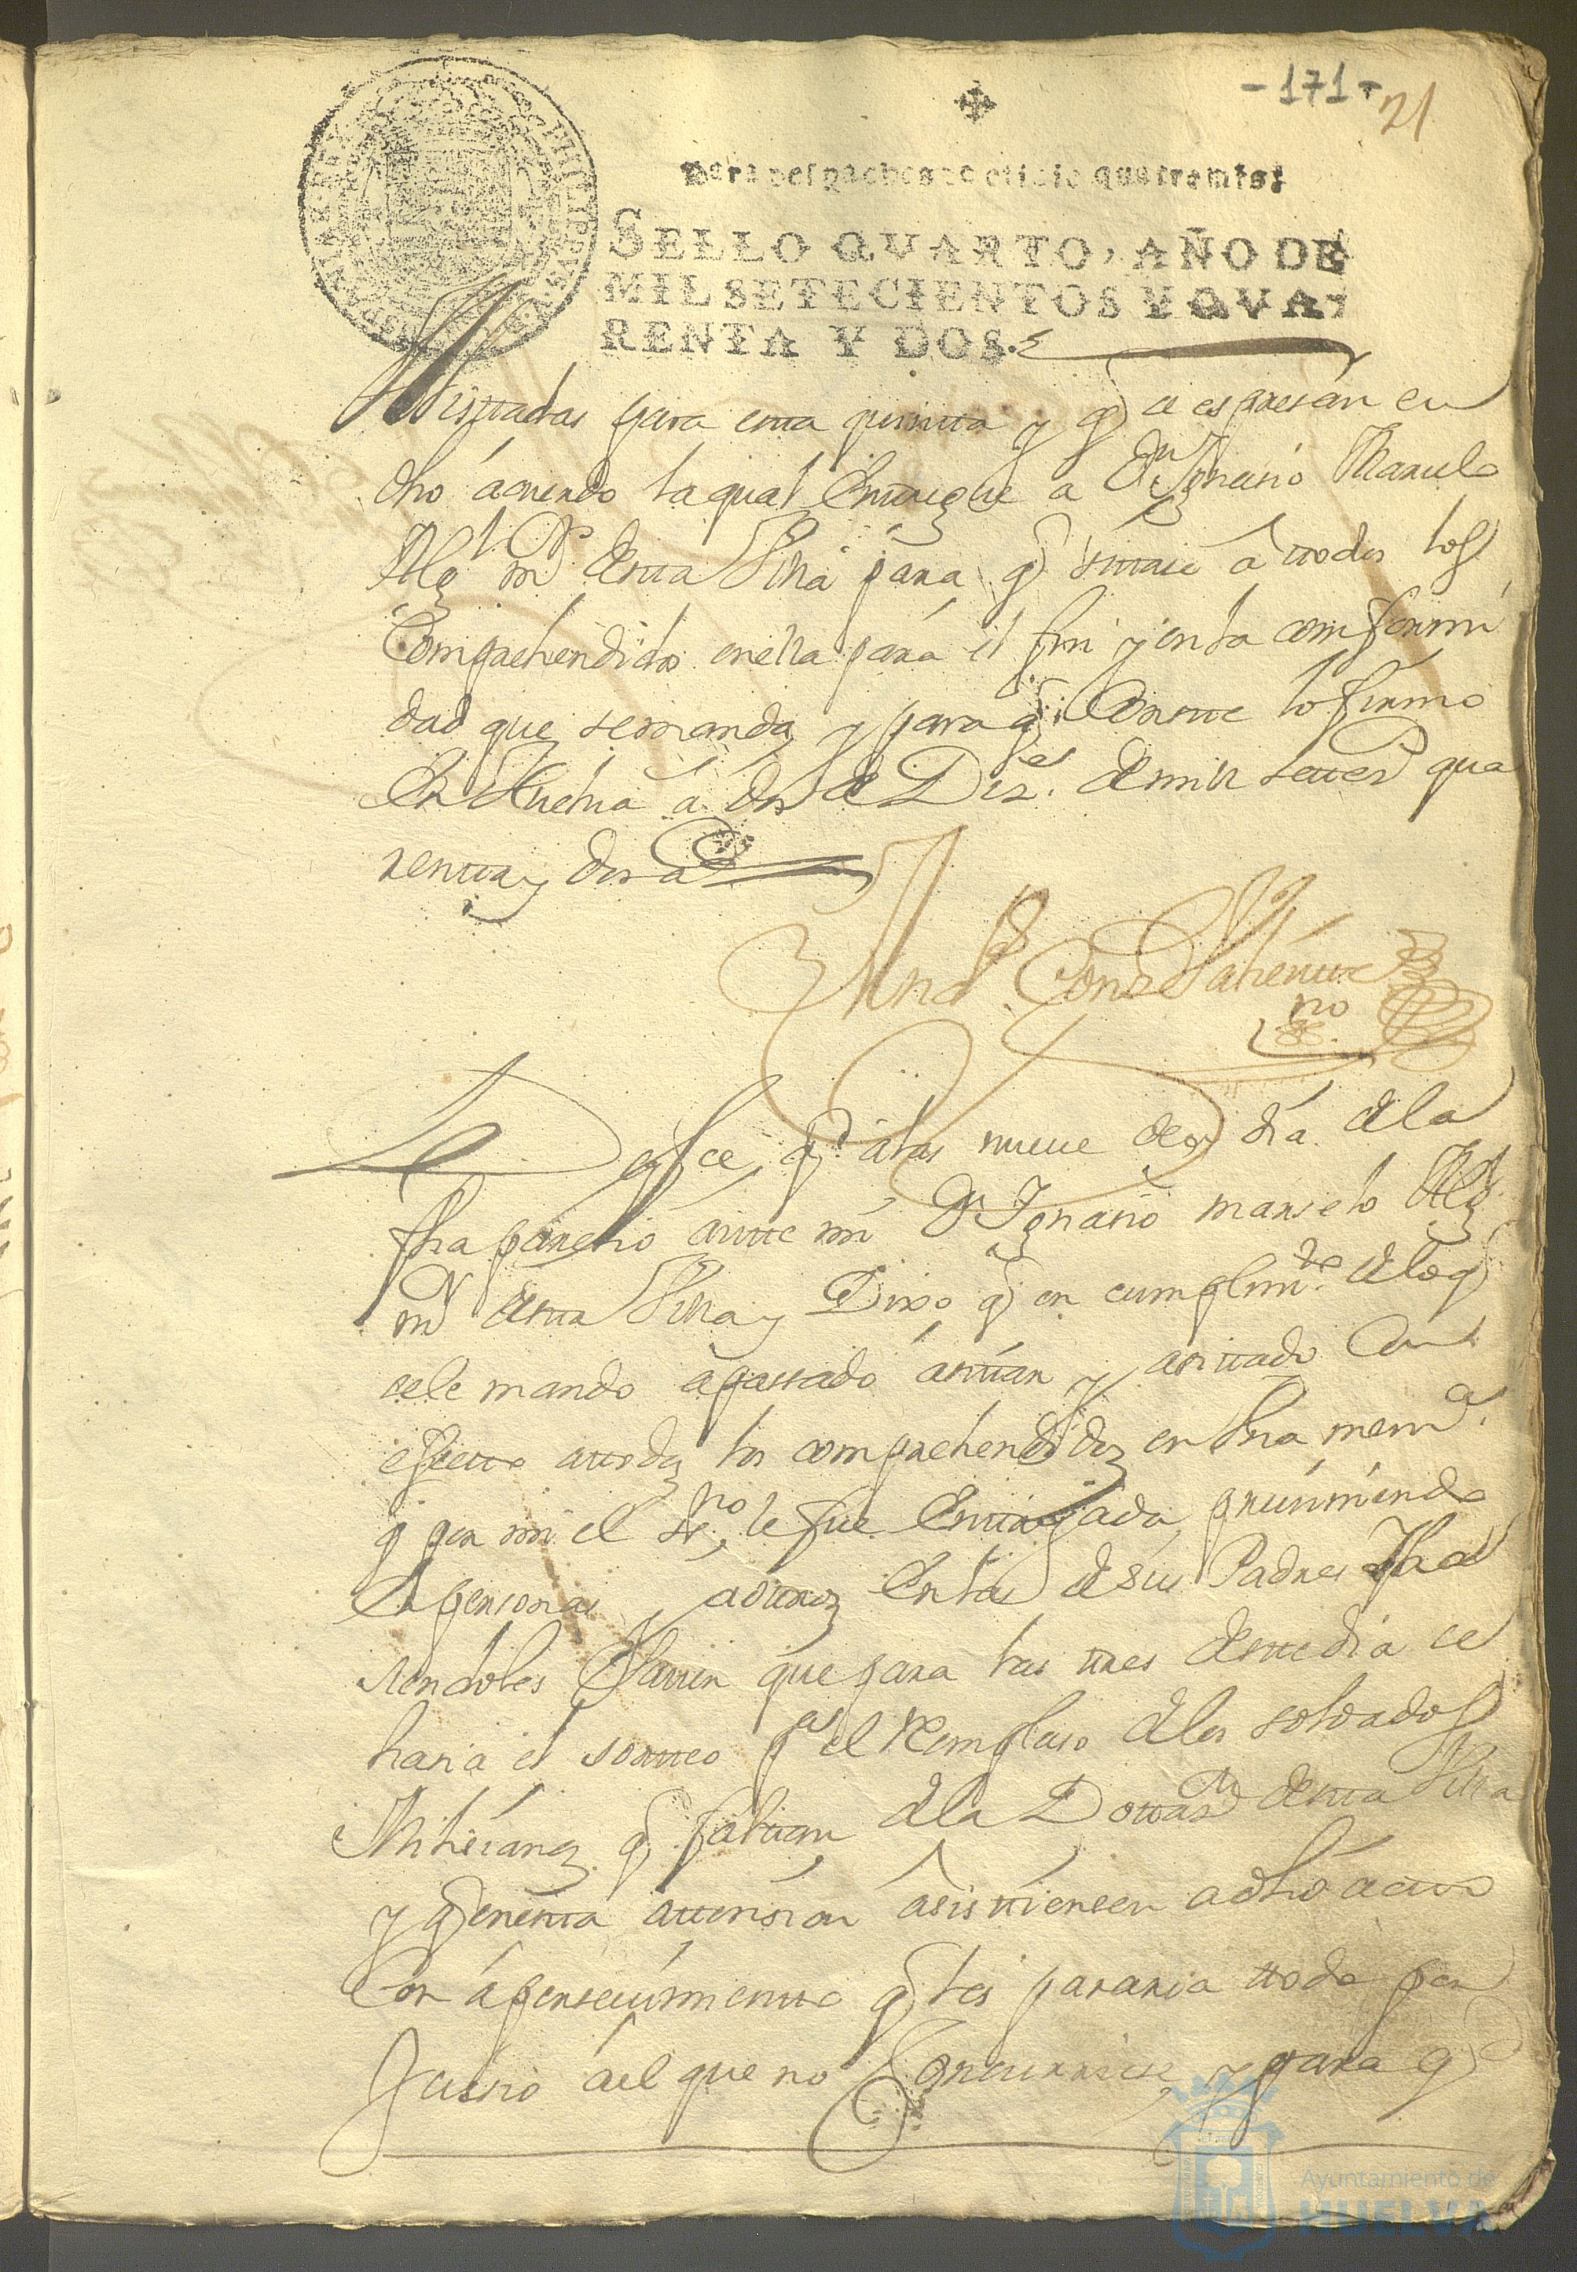 -171-
21
Para despachos de oficio quatro mrs.
SELLO QVARTO, AÑO DE
MIL SETECIENTOS Y QVA-
RENTA Y DOS.
Alistadas para esta quinta y q se espresan en
dho acuerdo la qual Entregue a Dn Ignacio Marcelo
Alg.l m.r desta Villa para q sitase a ttodos los
Comprehendidos en ella para el fin y en la comformi
dad que se manda, y para q Conste lo firmo
En Huelva a dos de Diz.e de mill settez.s qua
renta y dos a.s
And.s Conz Valiente
no
Doi fee, q a las nueve deel dia de la
fha parecio ante mi Dn Ignacio marcelo Alg.l
m.r desta Villa y Dixo q en cumplim.to de lo q
se le mando a passado a sittar y a sittado Con
efecto a ttodos los comprehendidos en la mem.a
q por mi el ess.no le fue Entregada, previniendo
En personas y a otros En las de sus Padres Ha
siendoles Saver que para las tres deste dia se
haria el sorteo p.a el Remplaso de los soldados
Milicianos q faltan de la Dottas.n desta Villa
y q en esta attension asisttiesen a dho acto
Con apersevimiento q les pararia ttodo per
Juisio a el que no Concurriese, y para q
Ayuntamiento de
HUELVA